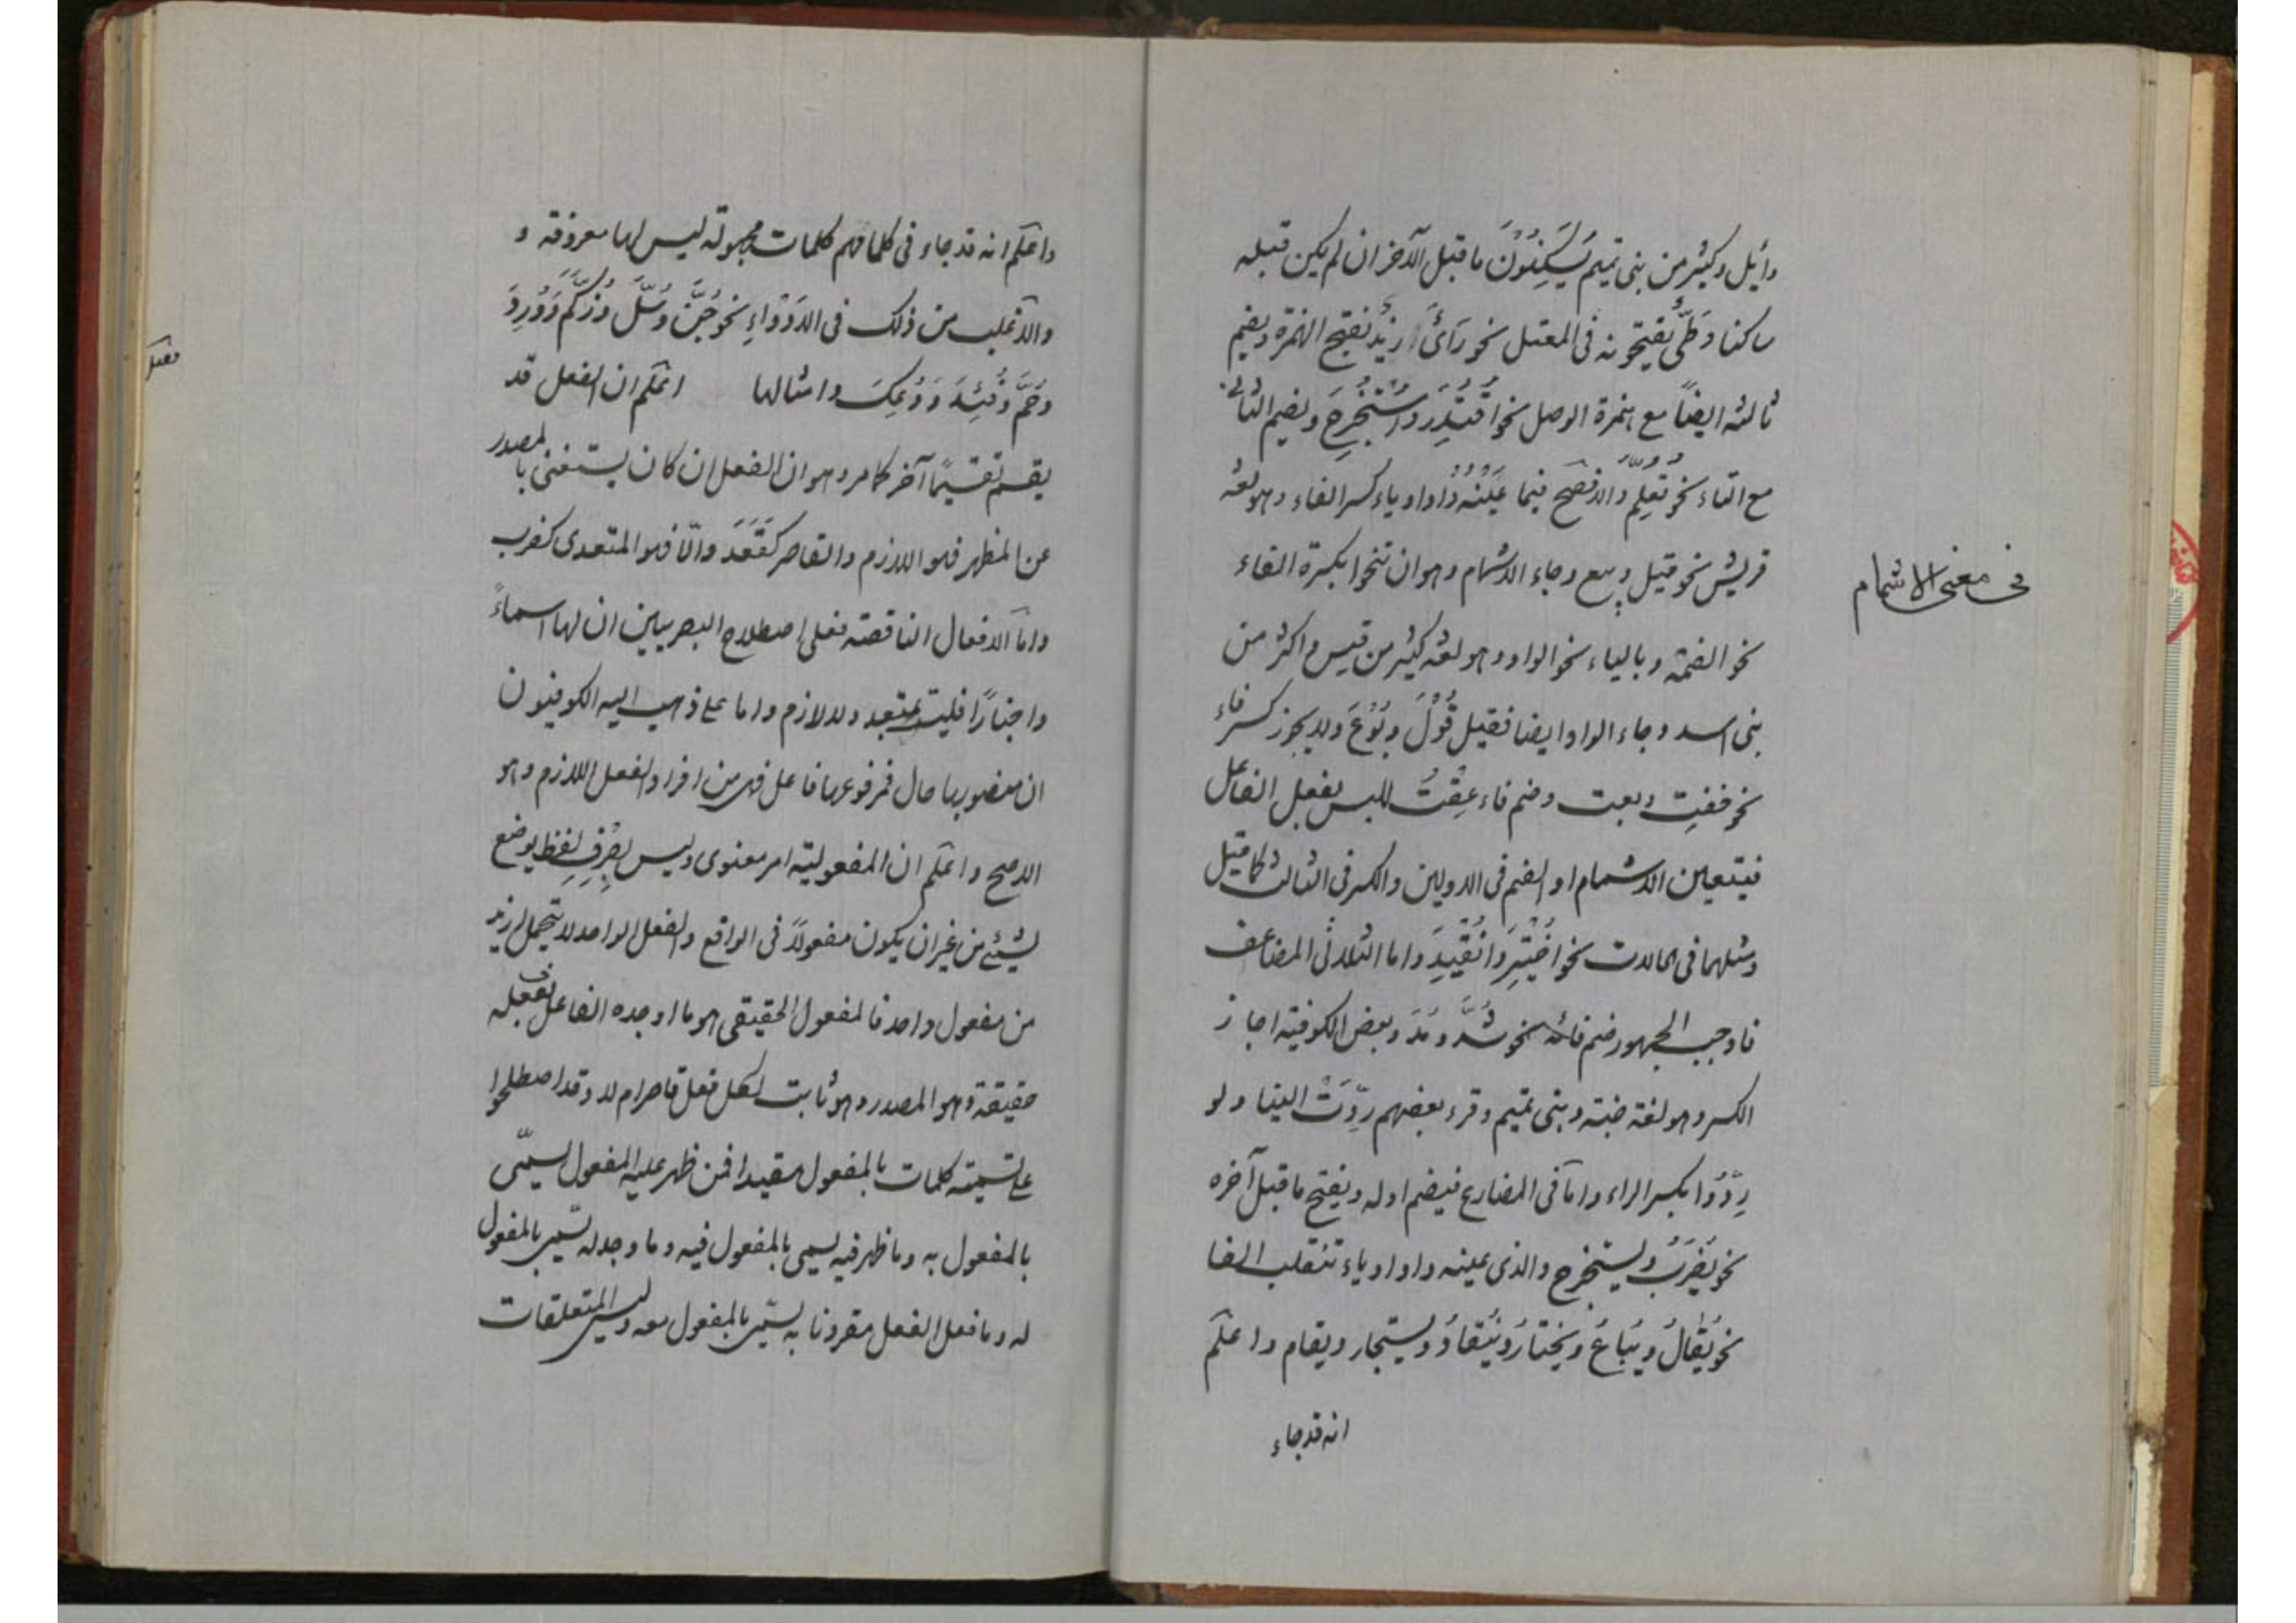 وائل وكثير من بنى تميم يُسَكِّنُونَ ما قبل الآخر ان لم يكن قبله
ساكنا وَطَىّءُ يفتحونه فى المعتل نحو رَأىَ زيد بفتح الهمزة ويضم
ثالثه ايضاً مع همزة الوصل نحو اُقْتُدِرَ واُسْتُخْرِجَ ويضم الثانى
مع التاء نحو تُعُلِّمَ والافصح فيما عَيْنُهُ واو او ياء كسر الفاء وهو لغة
قريش نحو قيل وبيع وجاء الاشمام وهو ان تنحوا بكسرة الفاء
فى معنى الاشمام
نحو الضمة وبالياء نحو الواو وهو لغة كثير من قيس واكثر من
بنى اسد وجاء الواو ايضا فقيل قُوْلَ وبُوْعَ ولا يجوز كسر فاء
نحو خفت وبعت وضم فاء عِقْتُ للبس بفعل الفاعل
فيتعين الاشمام او الضم فى الاولين والكسر فى الثالث كما قيل
ومثلهما فى الحالات نحو اُخْتِيْرَ واُنْقُيِدَ واما الثلاثى المضاعف
فاوجب الجمهور ضم فائه نحو شُدَّ ومُدَّ وبعض الكوفية اجاز
الكسر وهو لغة ضبة وبنى تميم وقرء بعضهم رِدَّتْ الينا ولو
رِدُّوْا بكسر الراء واما فى المضارع فيضم اوله ويفتح ما قبل آخره
نحو يُضْرَبُ ويستخرج والذى عينه واو او ياء تنقلب الفا
نحو يُقَالُ ويُبَاعُ ويُخْتَارُ ويُنْقَادُ ويستجار ويقام واعلم
انه قد جاء
واعلم انه قد جاء فى كلامهم كلمات مجهولة ليس لها معروفة و
والاغلب من ذلك فى الادْوَاءِ نحو جُنَّ وَسُلَّ وَزُكِمَ وَوُرِدَ
وَحُمَّ وَفُئِدَ وَوُعِكَ وامثالها اعلم ان الفعل قد
يقسم تقسيمًا آخر كما مر وهو ان الفعل ان كان يستغنى بالمصدر
عن المظهر فهو اللازم والقاصر كَقَعَدَ والّا فهو المتعدى كضرب
واما الافعال الناقصة فعلى اصطلاح البصريين ان لها اسماءً
واخبارًا فليست بمتعد ولا لازم واما على ذهب اليه الكوفيون
ان منصوبها حال فمرفوعها فاعل فهى من افراد الفعل اللازم وهو
الاصح واعلم ان المفعولية امر معنوى وليس بصِرْفِ لفظ يوضع
لشئ من غير ان يكون مفعولاً فى الواقع والفعل الواحد لا يتحمل ازيد
من مفعول واحد فالمفعول الحقيقى هو ما اوجده الفاعل بفعله
حقيقة وهو المصدر وهو ثابت لكل فعل قاصر ام لا وقد اصطلحوا
على تسمية كلمات بالمفعول مقيدا فمن ظهر عليه المفعول يسمّى
بالمفعول به وما ظهر فيه يسمى بالمفعول فيه وما وجد له يسمّى بالمفعول
له وما فعل الفعل مقرونا به يسمّى بالمفعول معه وليس المتعلقات